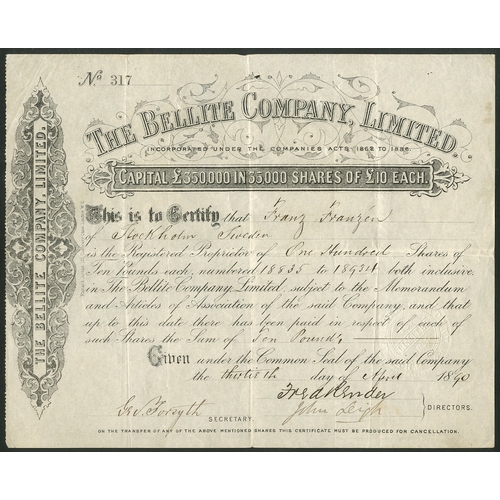 THE BELLITE COMPANY, LIMITED.
No 317
THE BELLITE COMPANY, LIMITED.
INCORPORATED UNDER THE COMPANIES ACTS 1862 TO 1886.
CAPITAL £350,000 IN 35,000 SHARES OF £10 EACH.
This is to Certify that Franz Franzén
of Stockholm Sweden
is the Registered Proprietor of One Hundred Shares of
Ten pounds each, numbered 18835 to 18934 both inclusive
in The Bellite Company, Limited, subject to the Memorandum
and Articles of Association of the said Company, and that
up to this date there has been paid in respect of each of
such Shares the Sum of Ten Pounds,
Given under the Common Seal of the said Company
the thirtieth day of April 1890
Fred Render
John Leigh
DIRECTORS.
Forsyth
SECRETARY.
ON THE TRANSFER OF ANY OF THE ABOVE MENTIONED SHARES THIS CERTIFICATE MUST BE PRODUCED FOR CANCELLATION.